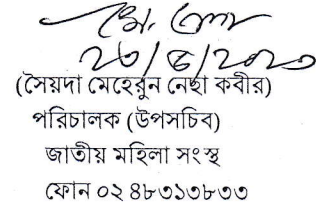 (সৈয়দা মেহেরুন নেছা কবীর)
পরিচালক (উপসচিব)
জাতীয় মহিলা সংস্থ
ফোন ০২ ৪৮৩১৩৮৩৩